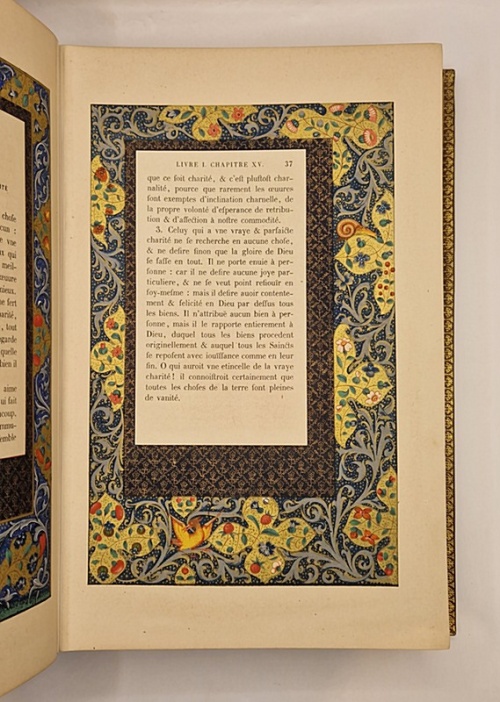 chose
cun :
vne
qui
meil-
ieux.
fert
arité,
tout
garde
quelle
bien il
aime
ui fait
coup.
mmu-
emble
LIVRE I. CHAPITRE XV. 37
que ce ſoit charité, & c'eſt pluſtoſt char-
nalité, pource que rarement les œuures
ſont exemptes d'inclination charnelle, de
la propre volonté d'eſperance de retribu-
tion & d'affection à noſtre commodité.
3. Celuy qui a vne vraye & parfaicte
charité ne ſe recherche en aucune choſe,
& ne deſire ſinon que la gloire de Dieu
ſe faſſe en tout. Il ne porte enuie à per-
ſonne : car il ne deſire aucune joye par-
ticuliere, & ne ſe veut point reſiouïr en
ſoy-meſme : mais il deſire auoir contente-
ment & felicité en Dieu par deſſus tous
les biens. Il n'attribuë aucun bien à per-
ſonne, mais il le rapporte entierement à
Dieu, duquel tous les biens procedent
originellement & auquel tous les Saincts
ſe repoſent auec iouïſſance comme en leur
fin. O qui auroit vne etincelle de la vraye
charité! il connoiſtroit certainement que
toutes les choſes de la terre ſont pleines
de vanité.